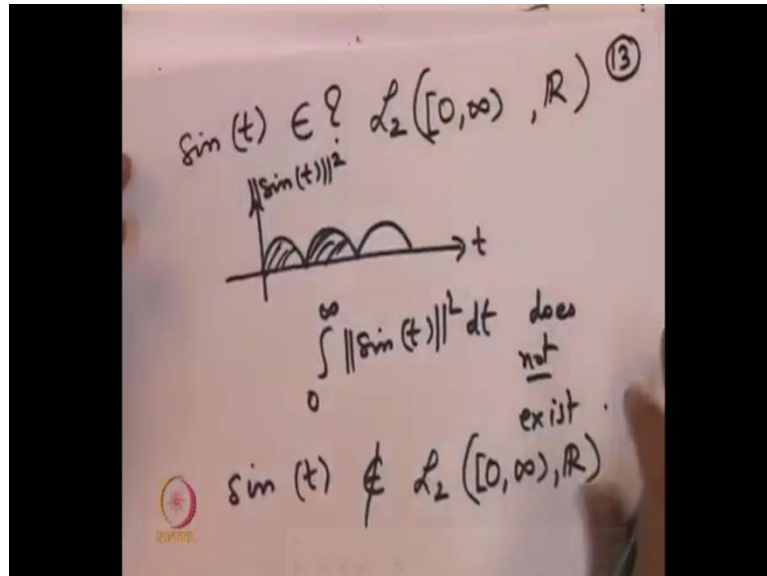 sin(t) ∈? L₂([0,∞), R) ⑬
||sin(t)||²
t
∫₀^∞ ||sin(t)||² dt does
not
exist.
sin(t) ∉ L₂([0,∞), R)
NPTEL